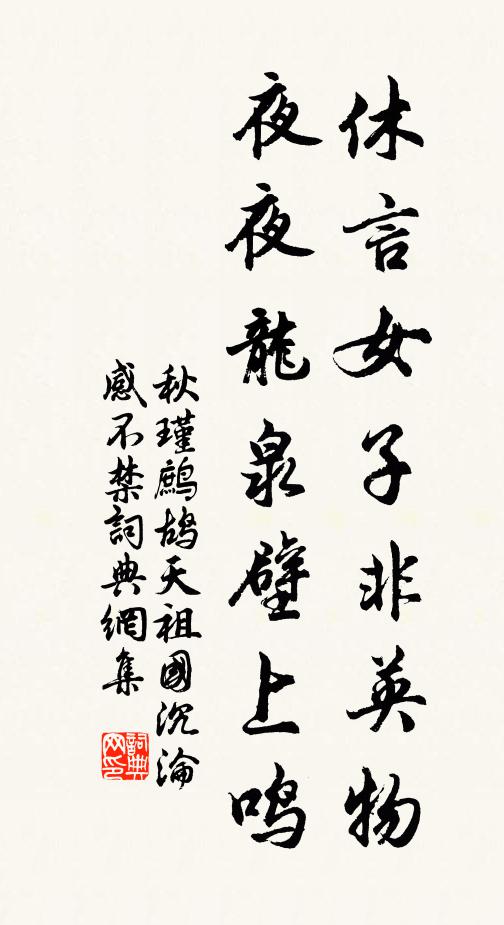 休言女子非英物
夜夜龍泉壁上鸣
秋瑾鷓鴣天祖國沉淪
感不禁詞典網集
詞典
网印